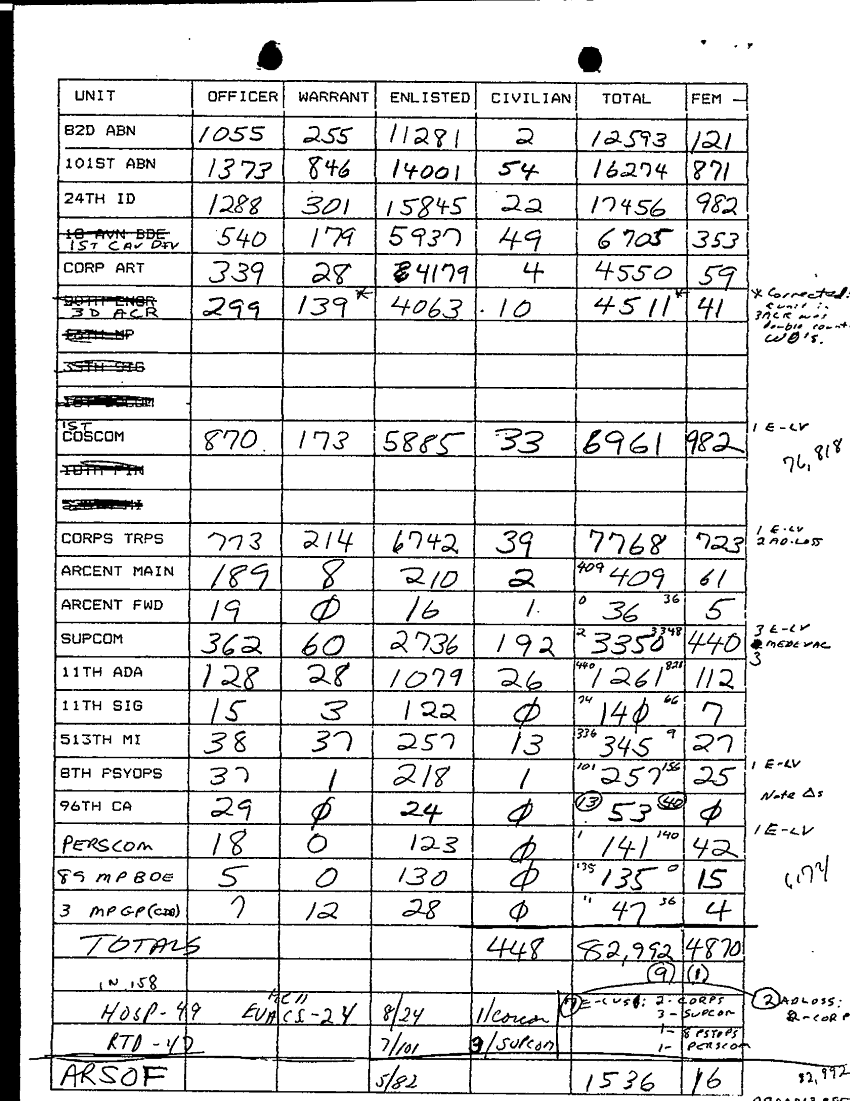 UNIT OFFICER WARRANT ENLISTED CIVILIAN TOTAL FEM
82D ABN 1055 255 11281 2 12593 121
101ST ABN 1373 846 14001 54 16274 871
24TH ID 1288 301 15845 22 17456 982
18 AVN BDE
1ST CAV DIV 540 179 5937 49 6705 353
CORP ART 339 28 4179 4 4550 59
20TH ENGR
3D ACR 299 139* 4063 10 4511* 41
* Corrected:
unit in
3ACR was
double count
WO's.
35TH SIG
1ST
COSCOM 870 173 5885 33 6961 982 1 E-LV
76,818
18TH FIN
CORPS TRPS 773 214 6742 39 7768 723 1 E-LV
2 AD-LOSS
ARCENT MAIN 189 8 210 2 409 409 61
ARCENT FWD 19 Ø 16 1 0 36 36 5
SUPCOM 362 60 2736 192 2 3350 3348 440 3 E-LV
MEDEVAC
3
11TH ADA 128 28 1079 26 440 1261 821 112
11TH SIG 15 3 122 Ø 74 140 66 7
513TH MI 38 37 257 13 336 345 9 27
8TH PSYOPS 37 1 218 1 101 257 156 25 1 E-LV
Note Δs
96TH CA 29 Ø 24 Ø 13 53 40 Ø
PERSCOM 18 0 123 Ø 1 141 140 42 1 E-LV
89 MP BDE 5 0 130 Ø 135 135 0 15
3 MP GP (CID) 7 12 28 Ø 11 47 36 4
TOTALS 448 82,992 4870
(9) (1)
IN 158
HOSP-49 EVACS-24 8/24 1/Coscom 7 E-LVS: 2-CORPS 2 ADLOSS:
3-SUPCOM 2-CORP
RTD-47 7/101 3/SUPCOM 1- 8 PSYOPS
1- PERSCOM
ARSOF 5/82 1536 16 82,992